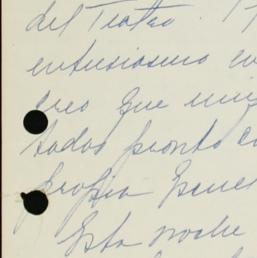 del Teatro.
entusiasmo en
creo que
todos pronto
propia
Esta noche